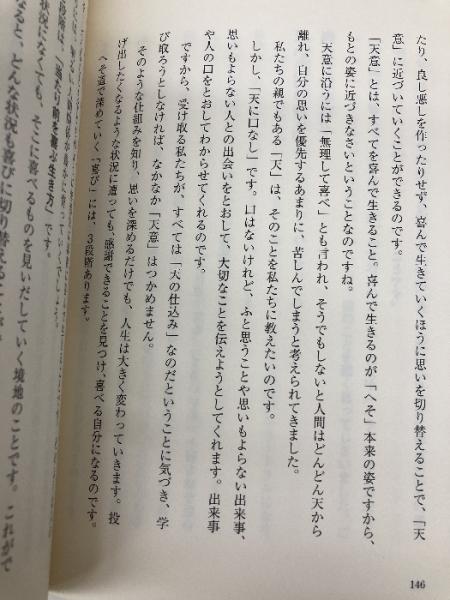 たり、良し悪しを作ったりせず、喜んで生きていくほうに思いを切り替えることで、「天
意」に近づいていくことができるのです。
「天意」とは、すべてを喜んで生きること。喜んで生きるのが「へそ」本来の姿ですから、
もとの姿に近づきなさいということなのですね。
天意に沿うには「無理して喜べ」とも言われ、そうでもしないと人間はどんどん天から
離れ、自分の思いを優先するあまりに、苦しんでしまうと考えられてきました。
私たちの親でもある「天」は、そのことを私たちに教えたいのです。
しかし、「天に口なし」です。口はないけれど、ふと思うことや思いもよらない出来事、
思いもよらない人との出会いをとおして、大切なことを伝えようとしてくれます。出来事
や人の口をとおしてわからせてくれるのです。
ですから、受け取る私たちが、すべては「天の仕込み」なのだということに気づき、学
び取ろうとしなければ、なかなか「天意」はつかめません。
そのような仕組みを知り、思いを深めるだけでも、人生は大きく変わっていきます。投
げ出したくなるような状況に遭っても、感謝できることを見つけ、喜べる自分になるのです。
へそ道で深めていく「喜び」には、3段階あります。
です。
状況になくても、そこに喜べるものを見いだしていく境地のことです。これがで
なると、どんな状況も喜びに切り替えること
146